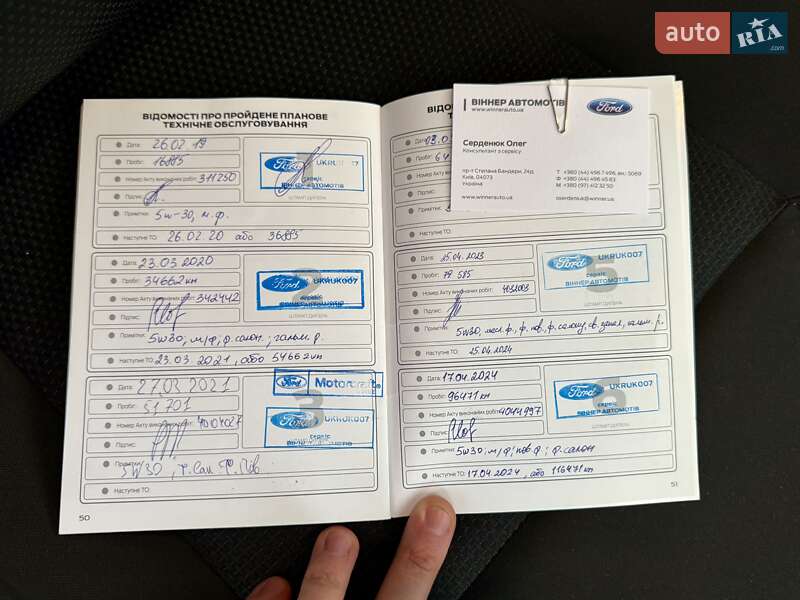 auto RIA .com
ВІДОМОСТІ ПРО ПРОЙДЕНЕ ПЛАНОВЕ
ТЕХНІЧНЕ ОБСЛУГОВУВАННЯ
Дата: 26.02.19
Пробіг: 16885
Номер Акту виконаних робіт: 311250
Підпис:
Ford UKRUK007
сервіс
ВІННЕР АВТОМОТІВ
ШТАМП ДИЛЕРА
Примітки: 5w-30, м.ф.
Наступне ТО: 26.02.20 або 36885
Дата: 23.03.2020
Пробіг: 34662 км
Номер Акту виконаних робіт: 342442
Підпис:
Ford UKRUK007
сервіс
ВІННЕР АВТОМОТІВ
ШТАМП ДИЛЕРА
Примітки: 5w30, м/ф, ф. салон.; гальм. р.
Наступне ТО: 23.03.2021, або 54662 км
Дата: 27.03 2021
Пробіг: 51701
Номер Акту виконаних робіт: 4004027
Підпис:
Ford Motorcraft
Ford UKRUK007
сервіс
ВІННЕР АВТОМОТІВ
Примітки: 5W30, ф. Сал Ф. Пов.
Наступне ТО:
50
ВІДО
Т
Дата: 03.0
Пробіг: 64
Номер Акту
Підпис:
Примітки:
Наступне ТО:
ВІННЕР АВТОМОТІВ
www.winnerauto.ua
Ford
Серденюк Олег
Консультант з сервісу
пр-т Степана Бандери, 24д
Київ, 04073
Україна
T +380 (44) 496 7 496, вн.: 5069
Ф +380 (44) 496 45 83
M +380 (97) 412 32 50
www.winnerauto.ua
oserdenuk@winner.ua
Дата: 25.04.2023
Пробіг: 79 585
Номер Акту виконаних робіт:
Підпис:
Ford UKRUK007
сервіс
ВІННЕР АВТОМОТІВ
ШТАМП ДИЛЕРА
Примітки: 5w30, масл. ф., ф. пов, ф. салону, св. запал., гальм. р.
Наступне ТО: 25.04.2024
Дата: 17.04.2024
Пробіг: 96471 км
Номер Акту виконаних робіт: 4044997
Підпис:
Ford UKRUK007
сервіс
ВІННЕР АВТОМОТІВ
ШТАМП ДИЛЕРА
Примітки: 5w30; м/ф; пов.ф.; ф. салон
Наступне ТО: 17.04.2024, або 116471 км
51